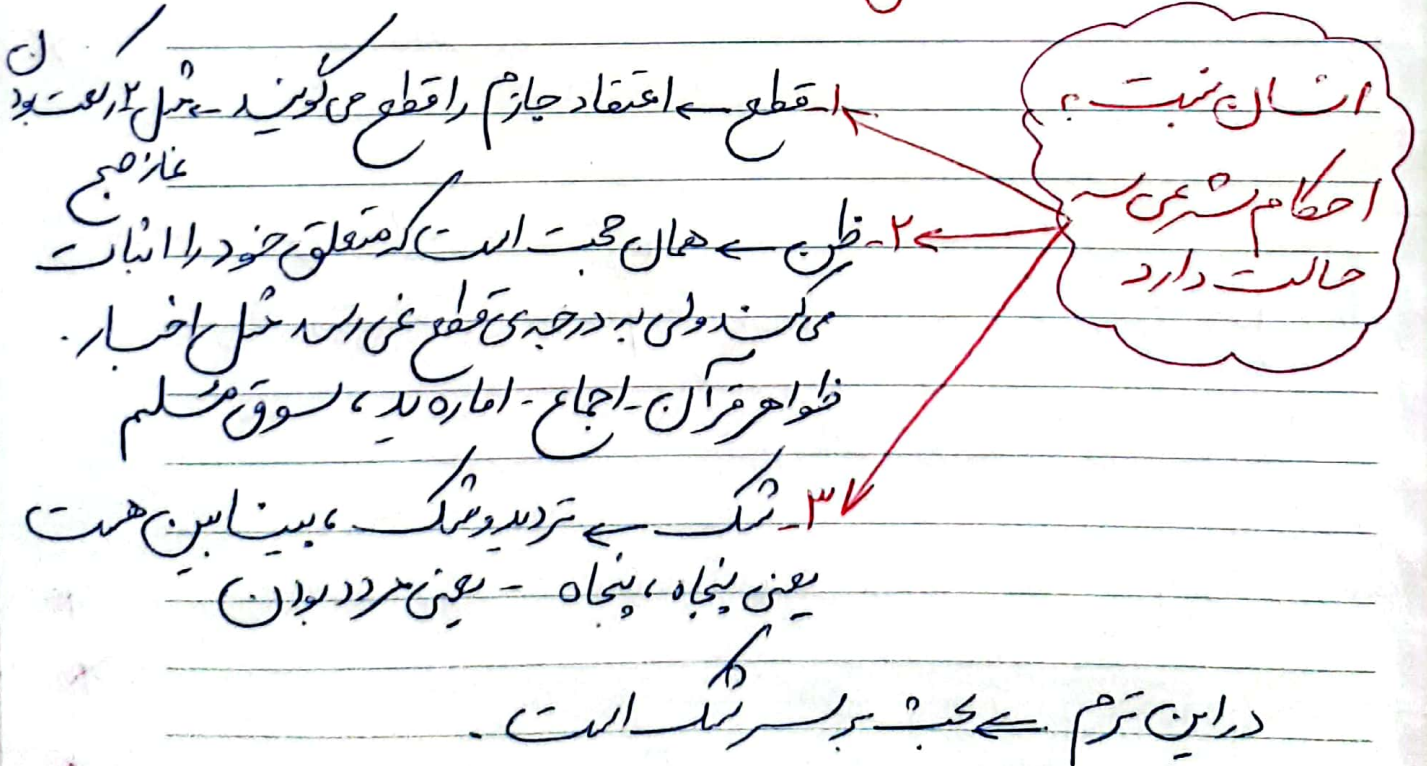 انسان نسبت به
احکام شرعی سه
حالت دارد
۱- قطع ← اعتقاد جازم را قطع می گویند ← مثل ۲ رکعت بودن
نماز صبح
۲- ظن ← همان حجت است که متعلق خود را اثبات
می کند ولی به درجه ی قطع نمی رسد مثل اخبار .
ظواهر قرآن - اجماع - اماره ید ، سوق مسلم
۳- شک ← تردید و شک ، بینابین هست
یعنی پنجاه ، پنجاه - یعنی مردد بودن
در این ترم ← بحث بر سر شک است .